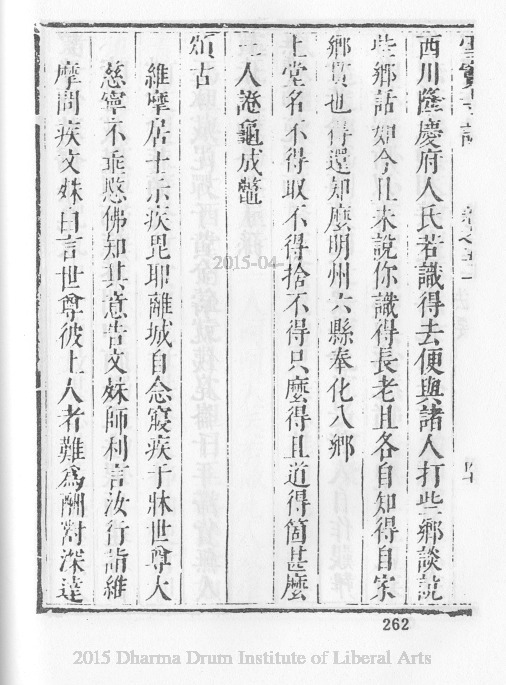 西川隆慶府人氏若識得去便與諸人打些鄉談說
些鄉話如今且未說你識得長老且各自知得自家
鄉貫也得還知麼明州六縣奉化八鄉
上堂名不得取不得捨不得只麼得且道得箇甚麼
證龜成鼈
頌古
維摩居士示疾毘耶離城自念寢疾于牀世尊大
慈寧不垂愍佛知其意告文殊師利言汝行詣維
摩問疾文殊白言世尊彼上人者難爲酬對深達
2015-04-
262
2015 Dharma Drum Institute of Liberal Arts